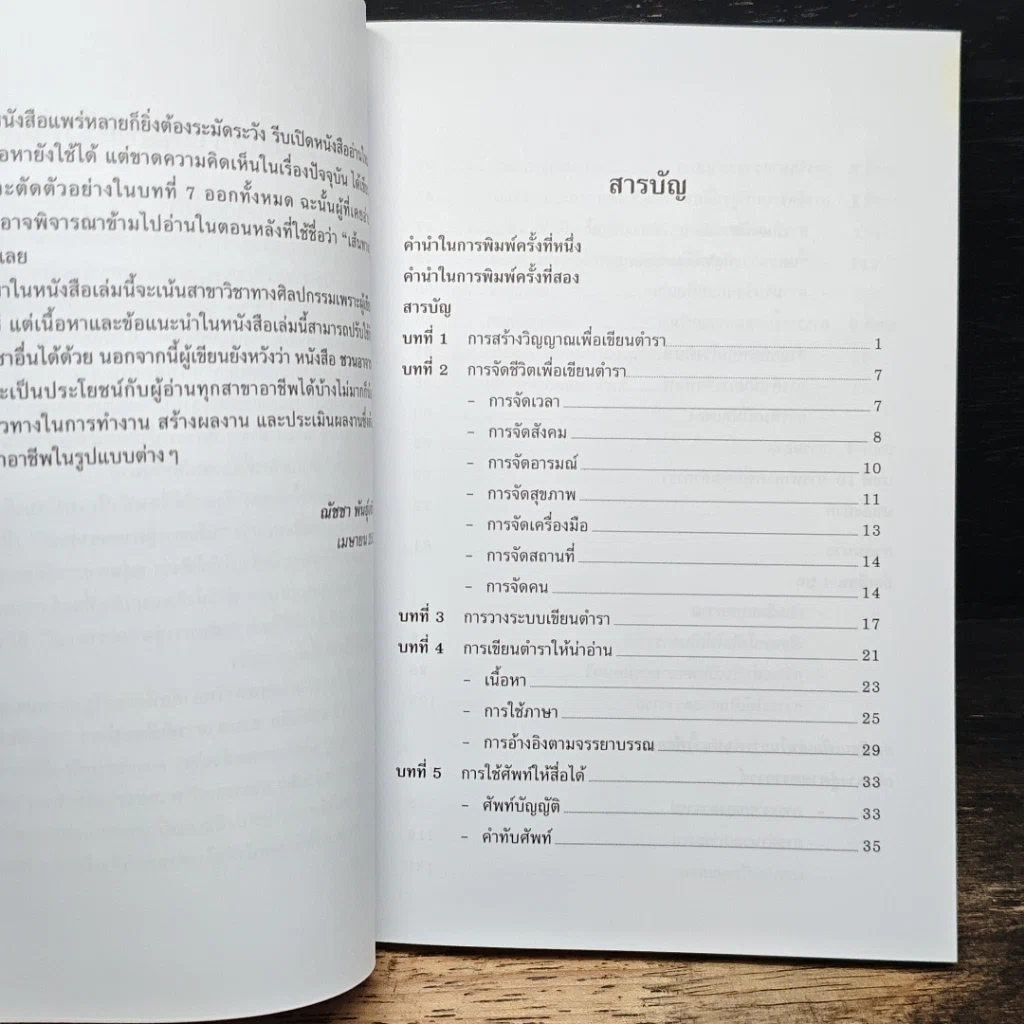 นังสือแพร่หลายก็ยิ่งต้องระมัดระวัง รีบเปิดหนังสืออ่าน
อหายังใช้ได้ แต่ขาดความคิดเห็นในเรื่องปัจจุบัน
ะตัดตัวอย่างในบทที่ 7 ออกทั้งหมด ฉะนั้นผู้ที่เคย
อาจพิจารณาข้ามไปอ่านในตอนหลังที่ใช้ชื่อว่า "เส้นทาง
เลย
าในหนังสือเล่มนี้จะเน้นสาขาวิชาทางศิลปกรรมเพราะ
แต่เนื้อหาและข้อแนะนำในหนังสือเล่มนี้สามารถ
าอื่นได้ด้วย นอกจากนี้ผู้เขียนยังหวังว่า หนังสือ
ะเป็นประโยชน์กับผู้อ่านทุกสาขาอาชีพได้บ้างไม่มากก็
วทางในการทำงาน สร้างผลงาน และประเมินผลงาน
อาชีพในรูปแบบต่าง ๆ
ณัชชา
เมษายน
สารบัญ
คำนำในการพิมพ์ครั้งที่หนึ่ง
คำนำในการพิมพ์ครั้งที่สอง
สารบัญ
บทที่ 1 การสร้างวิญญาณเพื่อเขียนตำรา 1
บทที่ 2 การจัดชีวิตเพื่อเขียนตำรา 7
- การจัดเวลา 7
- การจัดสังคม 8
- การจัดอารมณ์ 10
- การจัดสุขภาพ 11
- การจัดเครื่องมือ 13
- การจัดสถานที่ 14
- การจัดคน 14
บทที่ 3 การวางระบบเขียนตำรา 17
บทที่ 4 การเขียนตำราให้น่าอ่าน 21
- เนื้อหา 23
- การใช้ภาษา 25
- การอ้างอิงตามจรรยาบรรณ 29
บทที่ 5 การใช้ศัพท์ให้สื่อได้ 33
- ศัพท์บัญญัติ 33
- คำทับศัพท์ 35